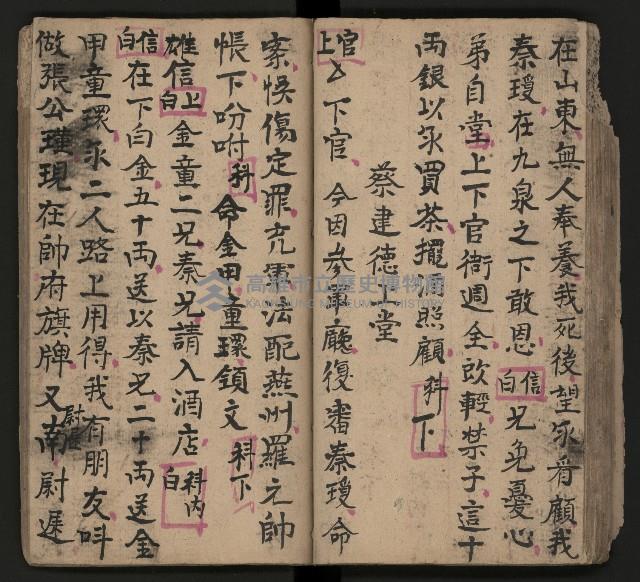 在山東無人奉養我死後望永看顧我
秦瓊在九泉之下敢恩信白兄免憂心
弟自堂上下官衙週全改輕禁子這十
両銀以永買茶擺照顧科下
蔡建德堂
官上㐅下官今因参軍廳復審秦瓊命
案悮傷定罪充軍法配燕州羅元帥
帳下吩咐科命金甲童環領文科下
雄信上白金童二兄秦兄請入酒店科內白
信白在下白金五十両送以秦兄二十両送金
甲童環永二人路上用得我有朋友叫
做張公瑾現在帥府旗牌又南尉遲
尉遲
高雄市立歷史博物館
KAOHSIUNG MUSEUM OF HISTORY